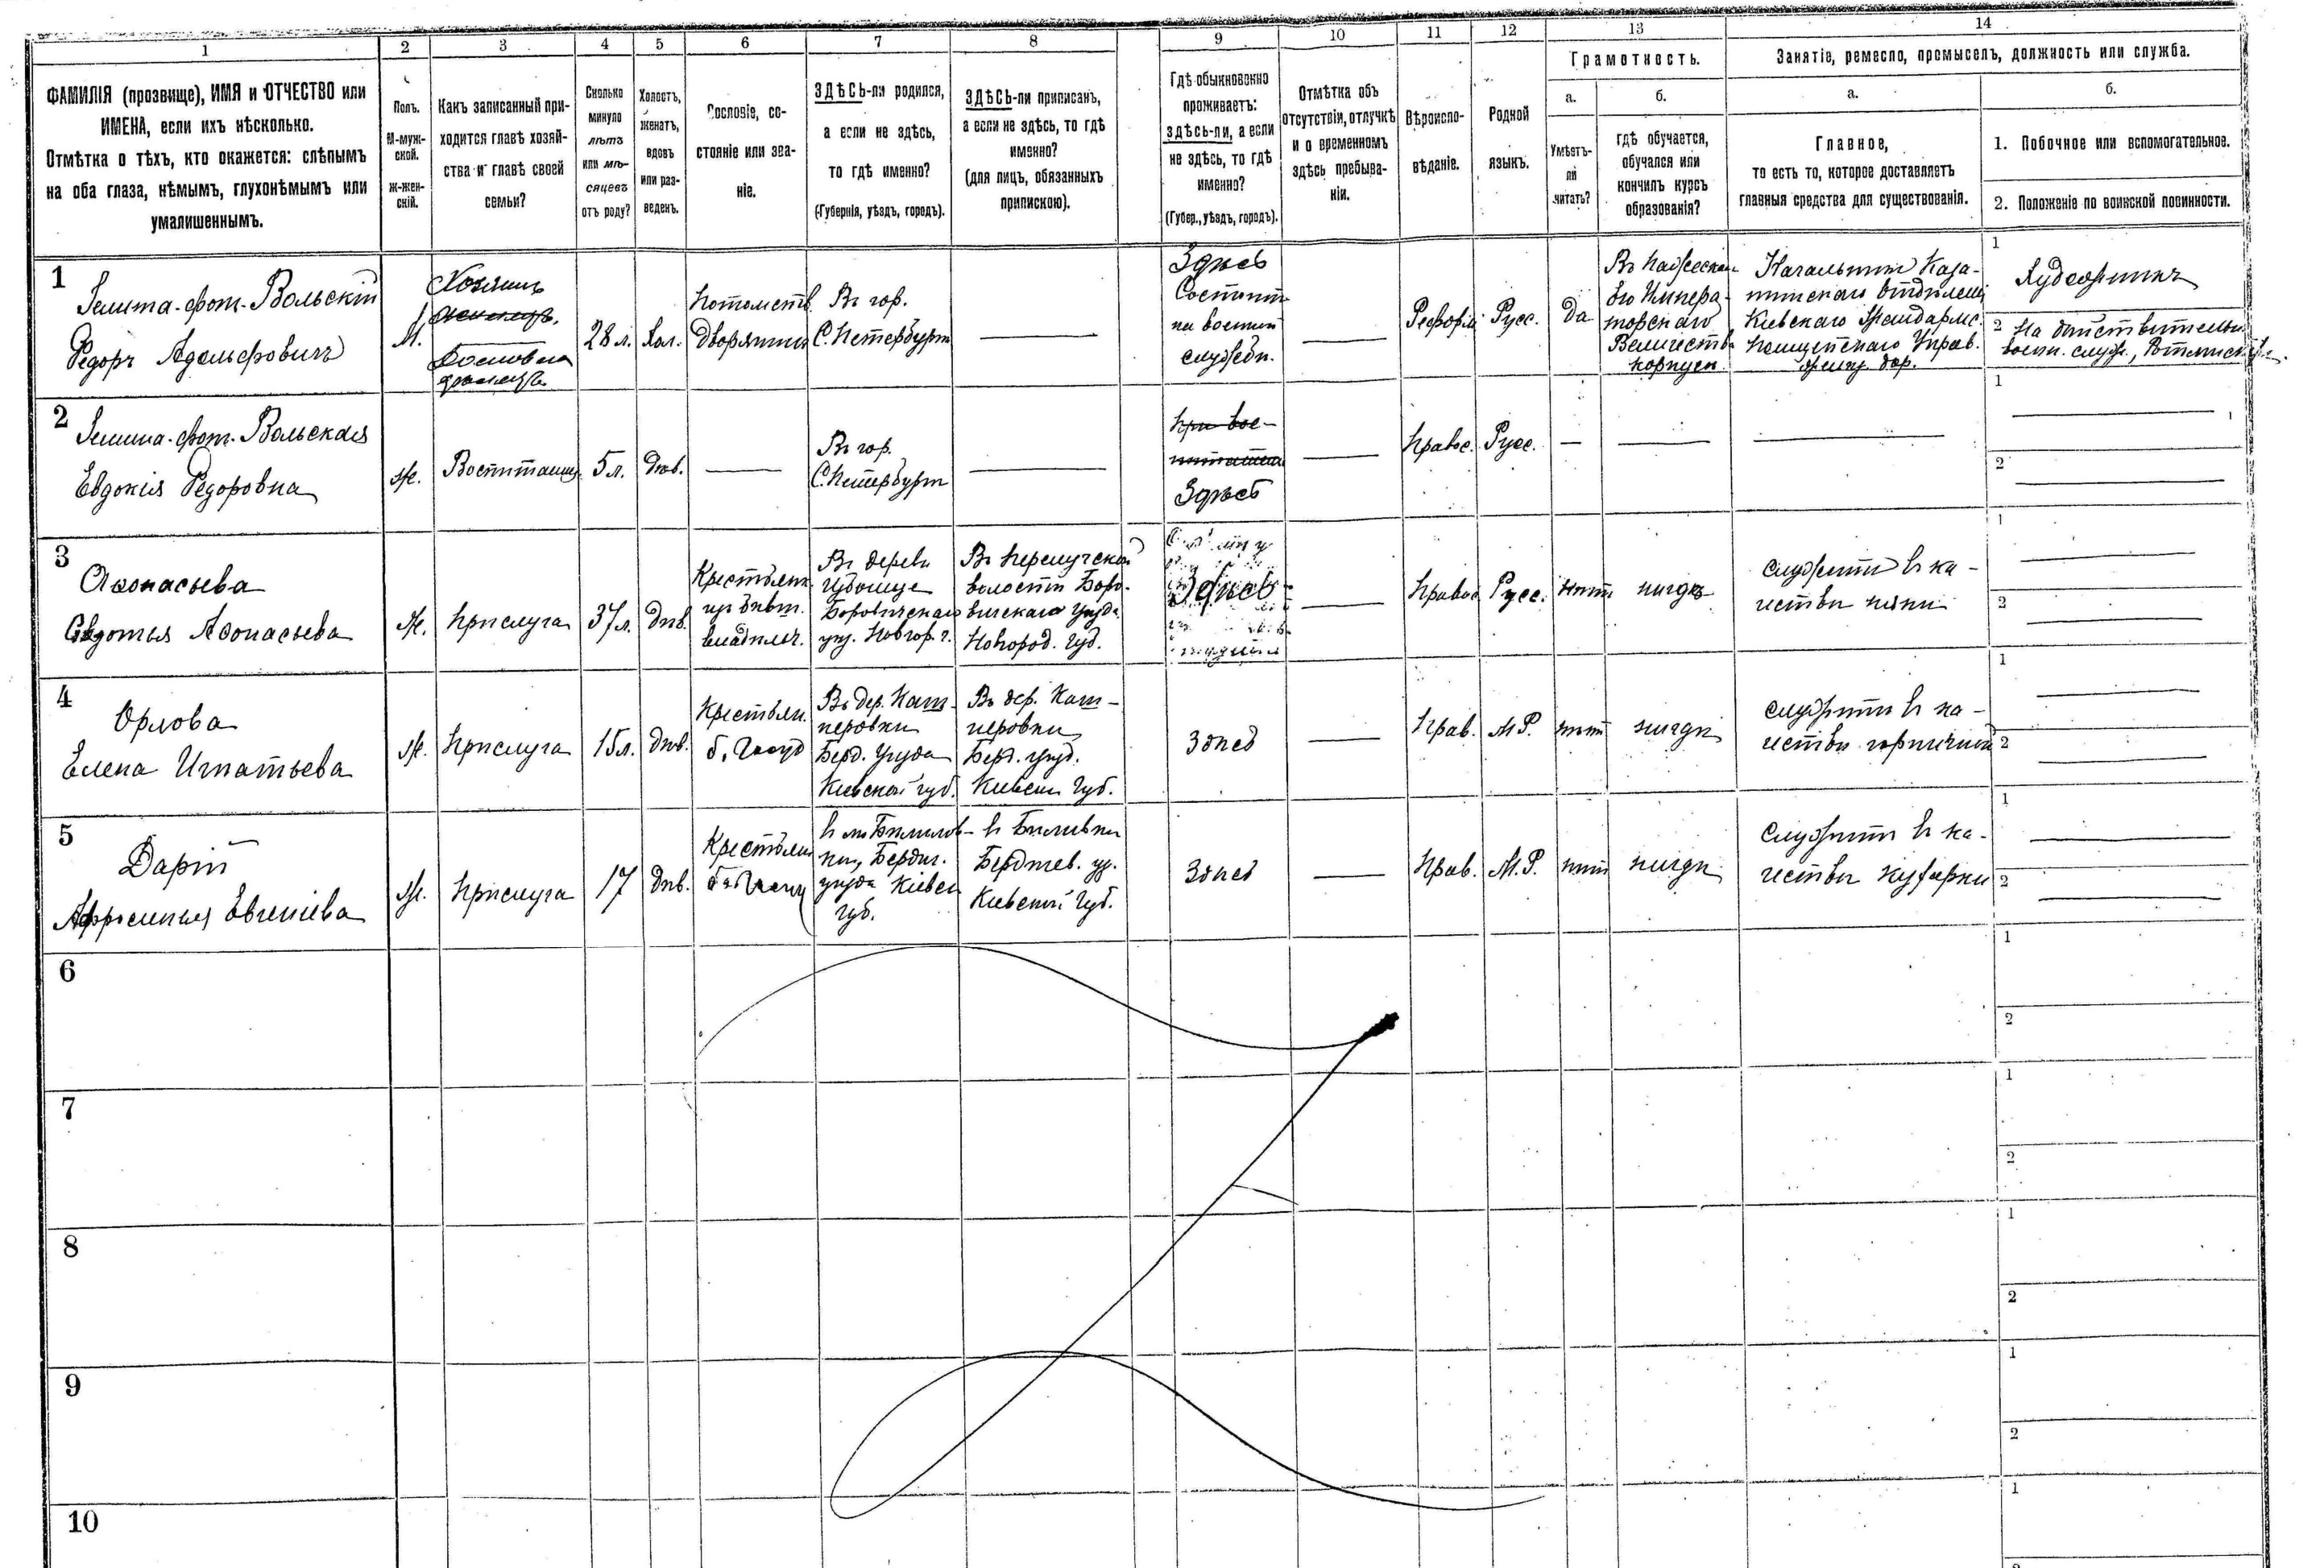 1
2
3
4
5
6
7
8
9
10
11
12
13
14
ФАМИЛІЯ (прозвище), ИМЯ и ОТЧЕСТВО или
ИМЕНА, если ихъ нѣсколько.
Отмѣтка о тѣхъ, кто окажется: слѣпымъ
на оба глаза, нѣмымъ, глухонѣмымъ или
умалишеннымъ.
Полъ.
М-муж-
ской.
Ж-жен-
скій.
Какъ записанный при-
ходится главѣ хозяй-
ства и главѣ своей
семьи?
Сколько
минуло
лѣтъ
или мѣ-
сяцевъ
отъ роду?
Холостъ,
женатъ,
вдовъ
или раз-
веденъ.
Сословіе, со-
стояніе или зва-
ніе.
ЗДѢСЬ-ли родился,
а если не здѣсь,
то гдѣ именно?
(Губернія, уѣздъ, городъ).
ЗДѢСЬ-ли приписанъ,
а если не здѣсь, то гдѣ
именно?
(для лицъ, обязанныхъ
припискою).
Гдѣ обыкновенно
проживаетъ:
здѣсь-ли, а если
не здѣсь, то гдѣ
именно?
(Губер., уѣздъ, городъ).
Отмѣтка объ
отсутствіи, отлучкѣ
и о временномъ
здѣсь пребыва-
ніи.
Вѣроиспо-
вѣданіе.
Родной
языкъ.
Грамотность.
а.
Умѣетъ-
ли
читать?
б.
гдѣ обучается,
обучался или
кончилъ курсъ
образованія?
Занятіе, ремесло, промыселъ, должность или служба.
а.
Главное,
то есть то, которое доставляетъ
главныя средства для существованія.
б.
1. Побочное или вспомогательное.
2. Положеніе по воинской повинности.
1
Вольскій
Федоръ Адольфовичъ
М.
Хозяинъ
28 л.
Хол.
Потомств.
Дворянинъ
Въ гор.
С. Петербургѣ
Здѣсь
Состоитъ
на военной
службѣ.
Реформ.
Русс.
да
Въ Пажеском
Его Импера-
торскаго
Величества
корпусѣ.
Начальникъ Каза-
тинскаго отдѣленія
Кіевскаго Жандармс.
Полицейскаго Управ.
желѣз. дор.
1
2 На дѣйствительной
воен. служ., Ротмистръ.
2
Вольская
Евдокія Федоровна
Ж.
Воспитанниц.
5 л.
Дѣв.
Въ гор.
С. Петербургѣ
При вос-
питателѣ
Здѣсь
Правос.
Русс.
1
2
3
Аѳонасьева
Евдотья Аѳонасьева
Ж.
Прислуга
37 л.
Дѣв.
Крестьянк.
владѣлеч.
Въ дерев.
Боровичскаго
уѣз. Новгор. г.
волости Боро-
вичскаго уѣзда
Новгород. губ.
Здѣсь
Правос.
Русс.
нѣтъ
нигдѣ
Служитъ въ ка-
чествѣ няни
1
2
4
Орлова
Елена Игнатьева
Ж.
Прислуга
15 л.
Дѣв.
Крестьян.
Въ дер. Каш-
перовки
Берд. уѣзда
Кіевской губ.
Въ дер. Каш-
перовки
Берд. уѣзд.
Кіевск. губ.
Здѣсь
Прав.
М. Р.
нѣтъ
нигдѣ
Служитъ въ ка-
чествѣ горничной
1
2
5
Дарій
Афросинья Евгеніева
Ж.
Прислуга
17
Дѣв.
Крестьян.
Бердич.
уѣзда Кіевск.
губ.
Бердичев. уѣ.
Кіевской губ.
Здѣсь
Прав.
М. Р.
нѣтъ
нигдѣ
Служитъ въ ка-
чествѣ кухарки
1
2
6
1
2
7
1
2
8
1
2
9
1
2
10
1